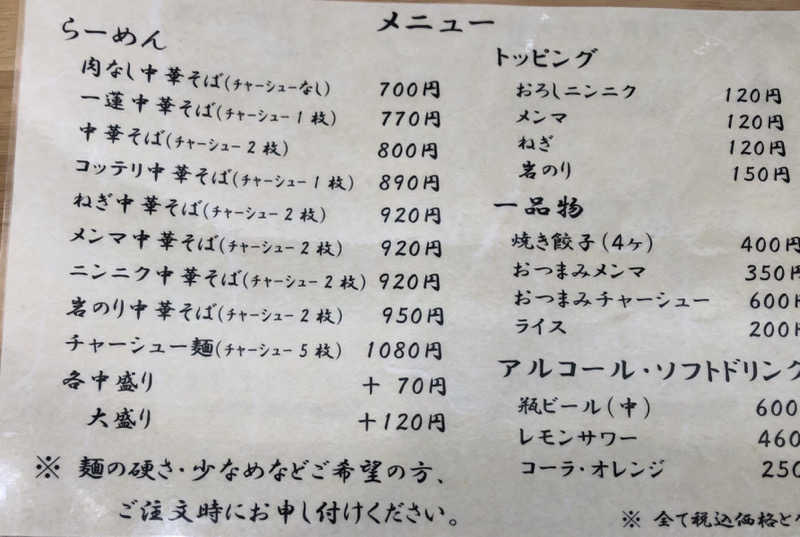 メニュー
らーめん
肉なし中華そば(チャーシューなし) 700円
一蓮中華そば(チャーシュー1枚) 770円
中華そば(チャーシュー2枚) 800円
コッテリ中華そば(チャーシュー1枚) 890円
ねぎ中華そば(チャーシュー2枚) 920円
メンマ中華そば(チャーシュー2枚) 920円
ニンニク中華そば(チャーシュー2枚) 920円
岩のり中華そば(チャーシュー2枚) 950円
チャーシュー麺(チャーシュー5枚) 1080円
各中盛り +70円
大盛り +120円
※ 麺の硬さ・少なめなどご希望の方、
ご注文時にお申し付けください。
トッピング
おろしニンニク 120円
メンマ 120円
ねぎ 120円
岩のり 150円
一品物
焼き餃子(4ヶ) 400円
おつまみメンマ 350円
おつまみチャーシュー 600円
ライス 200円
アルコール・ソフトドリンク
瓶ビール(中) 600
レモンサワー 460
コーラ・オレンジ 250
※ 全て税込価格と